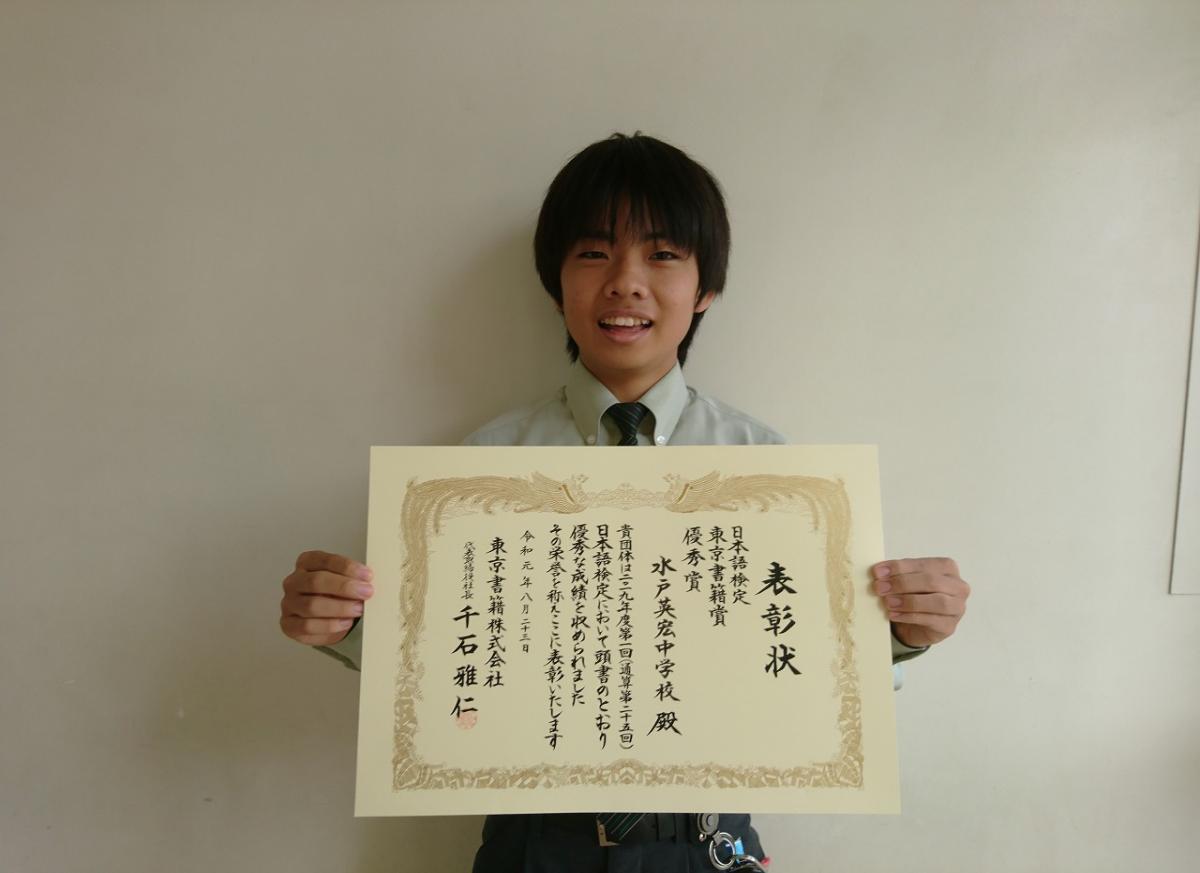 表彰状
日本語検定
東京書籍賞
優秀賞
水戸英宏中学校 殿
貴団体は二〇一九年度第一回(通算第二十五回)
日本語検定において頭書のとおり
優秀な成績を収められました
その栄誉を称えここに表彰いたします
令和元年八月二十三日
東京書籍株式会社
代表取締役社長 千石雅仁